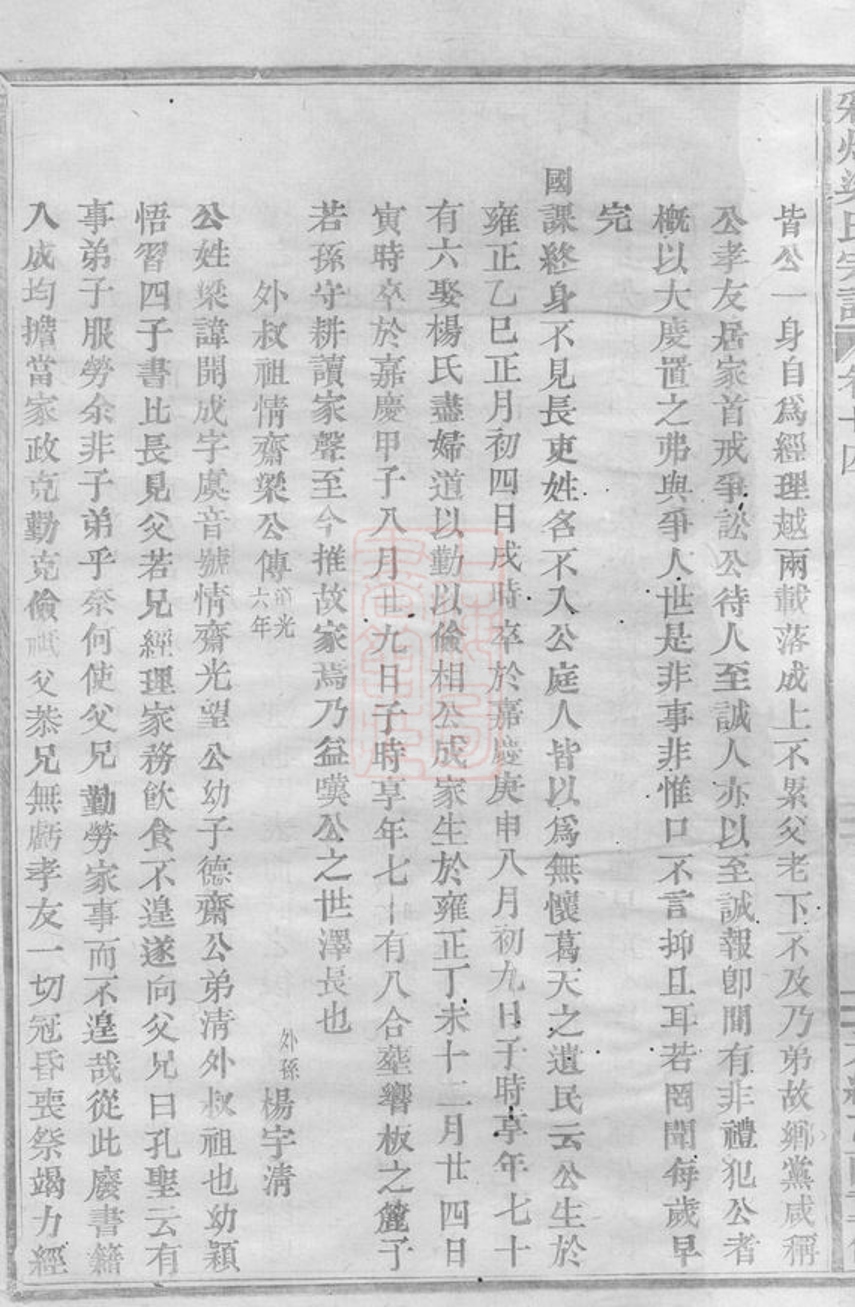 梁氏宗譜 卷十四
皆公一身自爲經理越兩載落成上不累父老下不及乃弟故鄉黨咸稱
公孝友居家首戒爭訟公待人至誠人亦以至誠報卽間有非禮犯公者
槪以大慶置之弗與爭人世是非事非惟口不言抑且耳若罔聞每歲早
完
國課終身不見長吏姓名不入公庭人皆以爲無懷葛天之遺民云公生於
雍正乙巳正月初四日戌時卒於嘉慶庚申八月初九日子時享年七十
有六娶楊氏盡婦道以勤以儉相公成家生於雍正丁未十二月廿四日
寅時卒於嘉慶甲子八月廿九日子時享年七十有八合塟響板之麓子
若孫守耕讀家聲至今推故家焉乃益嘆公之世澤長也
外叔祖情齋梁公傳 道光六年 外孫 楊宇清
公姓梁諱開成字虞音號情齋光望公幼子德齋公弟清外叔祖也幼穎
悟習四子書比長見父若兄經理家務飮食不遑遂向父兄曰孔聖云有
事弟子服勞余非子弟乎奈何使父兄勤勞家事而不遑哉從此廢書籍
入成均擔當家政克勤克儉祗父恭兄無虧孝友一切冠昏喪祭竭力經